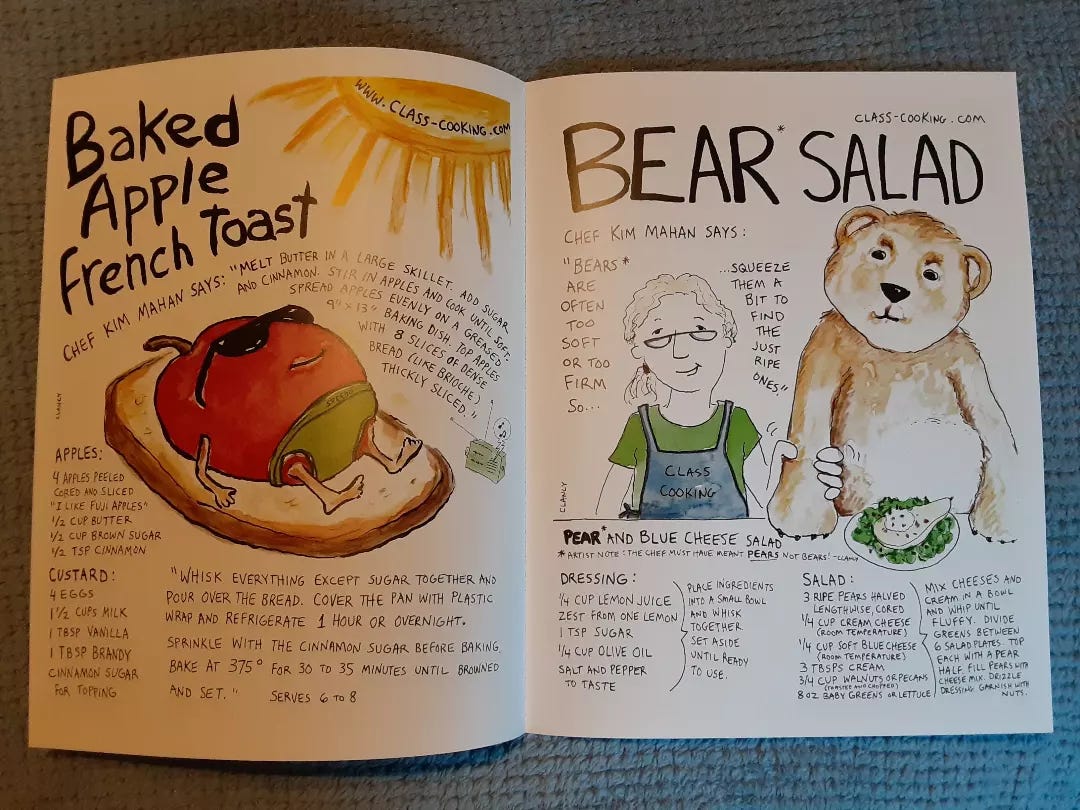 Baked
Apple
French Toast
WWW.CLASS-COOKING.COM
CHEF KIM MAHAN SAYS: "MELT BUTTER IN A LARGE SKILLET. ADD SUGAR
AND CINNAMON. STIR IN APPLES AND COOK UNTIL SOFT.
SPREAD APPLES EVENLY ON A GREASED
9"x13" BAKING DISH. TOP APPLES
WITH 8 SLICES OF DENSE
BREAD (LIKE BRIOCHE)
THICKLY SLICED."
SPEEDO
CLANCY
APPLES:
4 APPLES PEELED
CORED AND SLICED
"I LIKE FUJI APPLES"
1/2 CUP BUTTER
1/2 CUP BROWN SUGAR
1/2 TSP CINNAMON
CUSTARD:
4 EGGS
1 1/2 CUPS MILK
1 TBSP VANILLA
1 TBSP BRANDY
CINNAMON SUGAR
FOR TOPPING
"WHISK EVERYTHING EXCEPT SUGAR TOGETHER AND
POUR OVER THE BREAD. COVER THE PAN WITH PLASTIC
WRAP AND REFRIGERATE 1 HOUR OR OVERNIGHT.
SPRINKLE WITH THE CINNAMON SUGAR BEFORE BAKING.
BAKE AT 375° FOR 30 TO 35 MINUTES UNTIL BROWNED
AND SET." SERVES 6 TO 8
CLASS-COOKING.COM
BEAR* SALAD
CHEF KIM MAHAN SAYS:
"BEARS*
ARE
OFTEN
TOO
SOFT
OR TOO
FIRM
SO...
...SQUEEZE
THEM A
BIT TO
FIND
THE
JUST
RIPE
ONES."
CLASS
COOKING
CLANCY
PEAR* AND BLUE CHEESE SALAD
*ARTIST NOTE: THE CHEF MUST HAVE MEANT PEARS NOT BEARS! -CLANCY
DRESSING:
1/4 CUP LEMON JUICE
ZEST FROM ONE LEMON
1 TSP SUGAR
1/4 CUP OLIVE OIL
SALT AND PEPPER
TO TASTE
PLACE INGREDIENTS
INTO A SMALL BOWL
AND WHISK
TOGETHER
SET ASIDE
UNTIL READY
TO USE.
SALAD:
3 RIPE PEARS HALVED
LENGTHWISE, CORED
1/4 CUP CREAM CHEESE
(ROOM TEMPERATURE)
1/4 CUP SOFT BLUE CHEESE
(ROOM TEMPERATURE)
3 TBSPS CREAM
3/4 CUP WALNUTS OR PECANS
(TOASTED AND CHOPPED)
8 OZ BABY GREENS OR LETTUCE
MIX CHEESES AND
CREAM IN A BOWL
AND WHIP UNTIL
FLUFFY. DIVIDE
GREENS BETWEEN
6 SALAD PLATES. TOP
EACH WITH A PEAR
HALF. FILL PEARS WITH
CHEESE MIX. DRIZZLE
DRESSING. GARNISH WITH
NUTS.